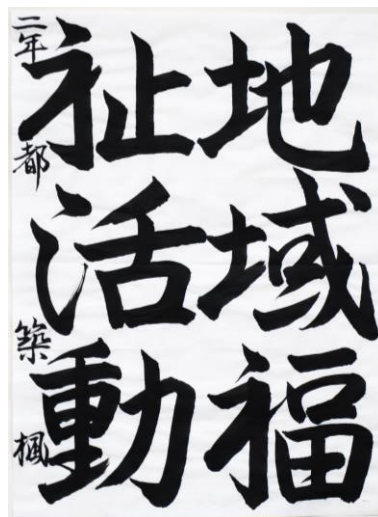 地域福
祉活動
二年 都築 楓